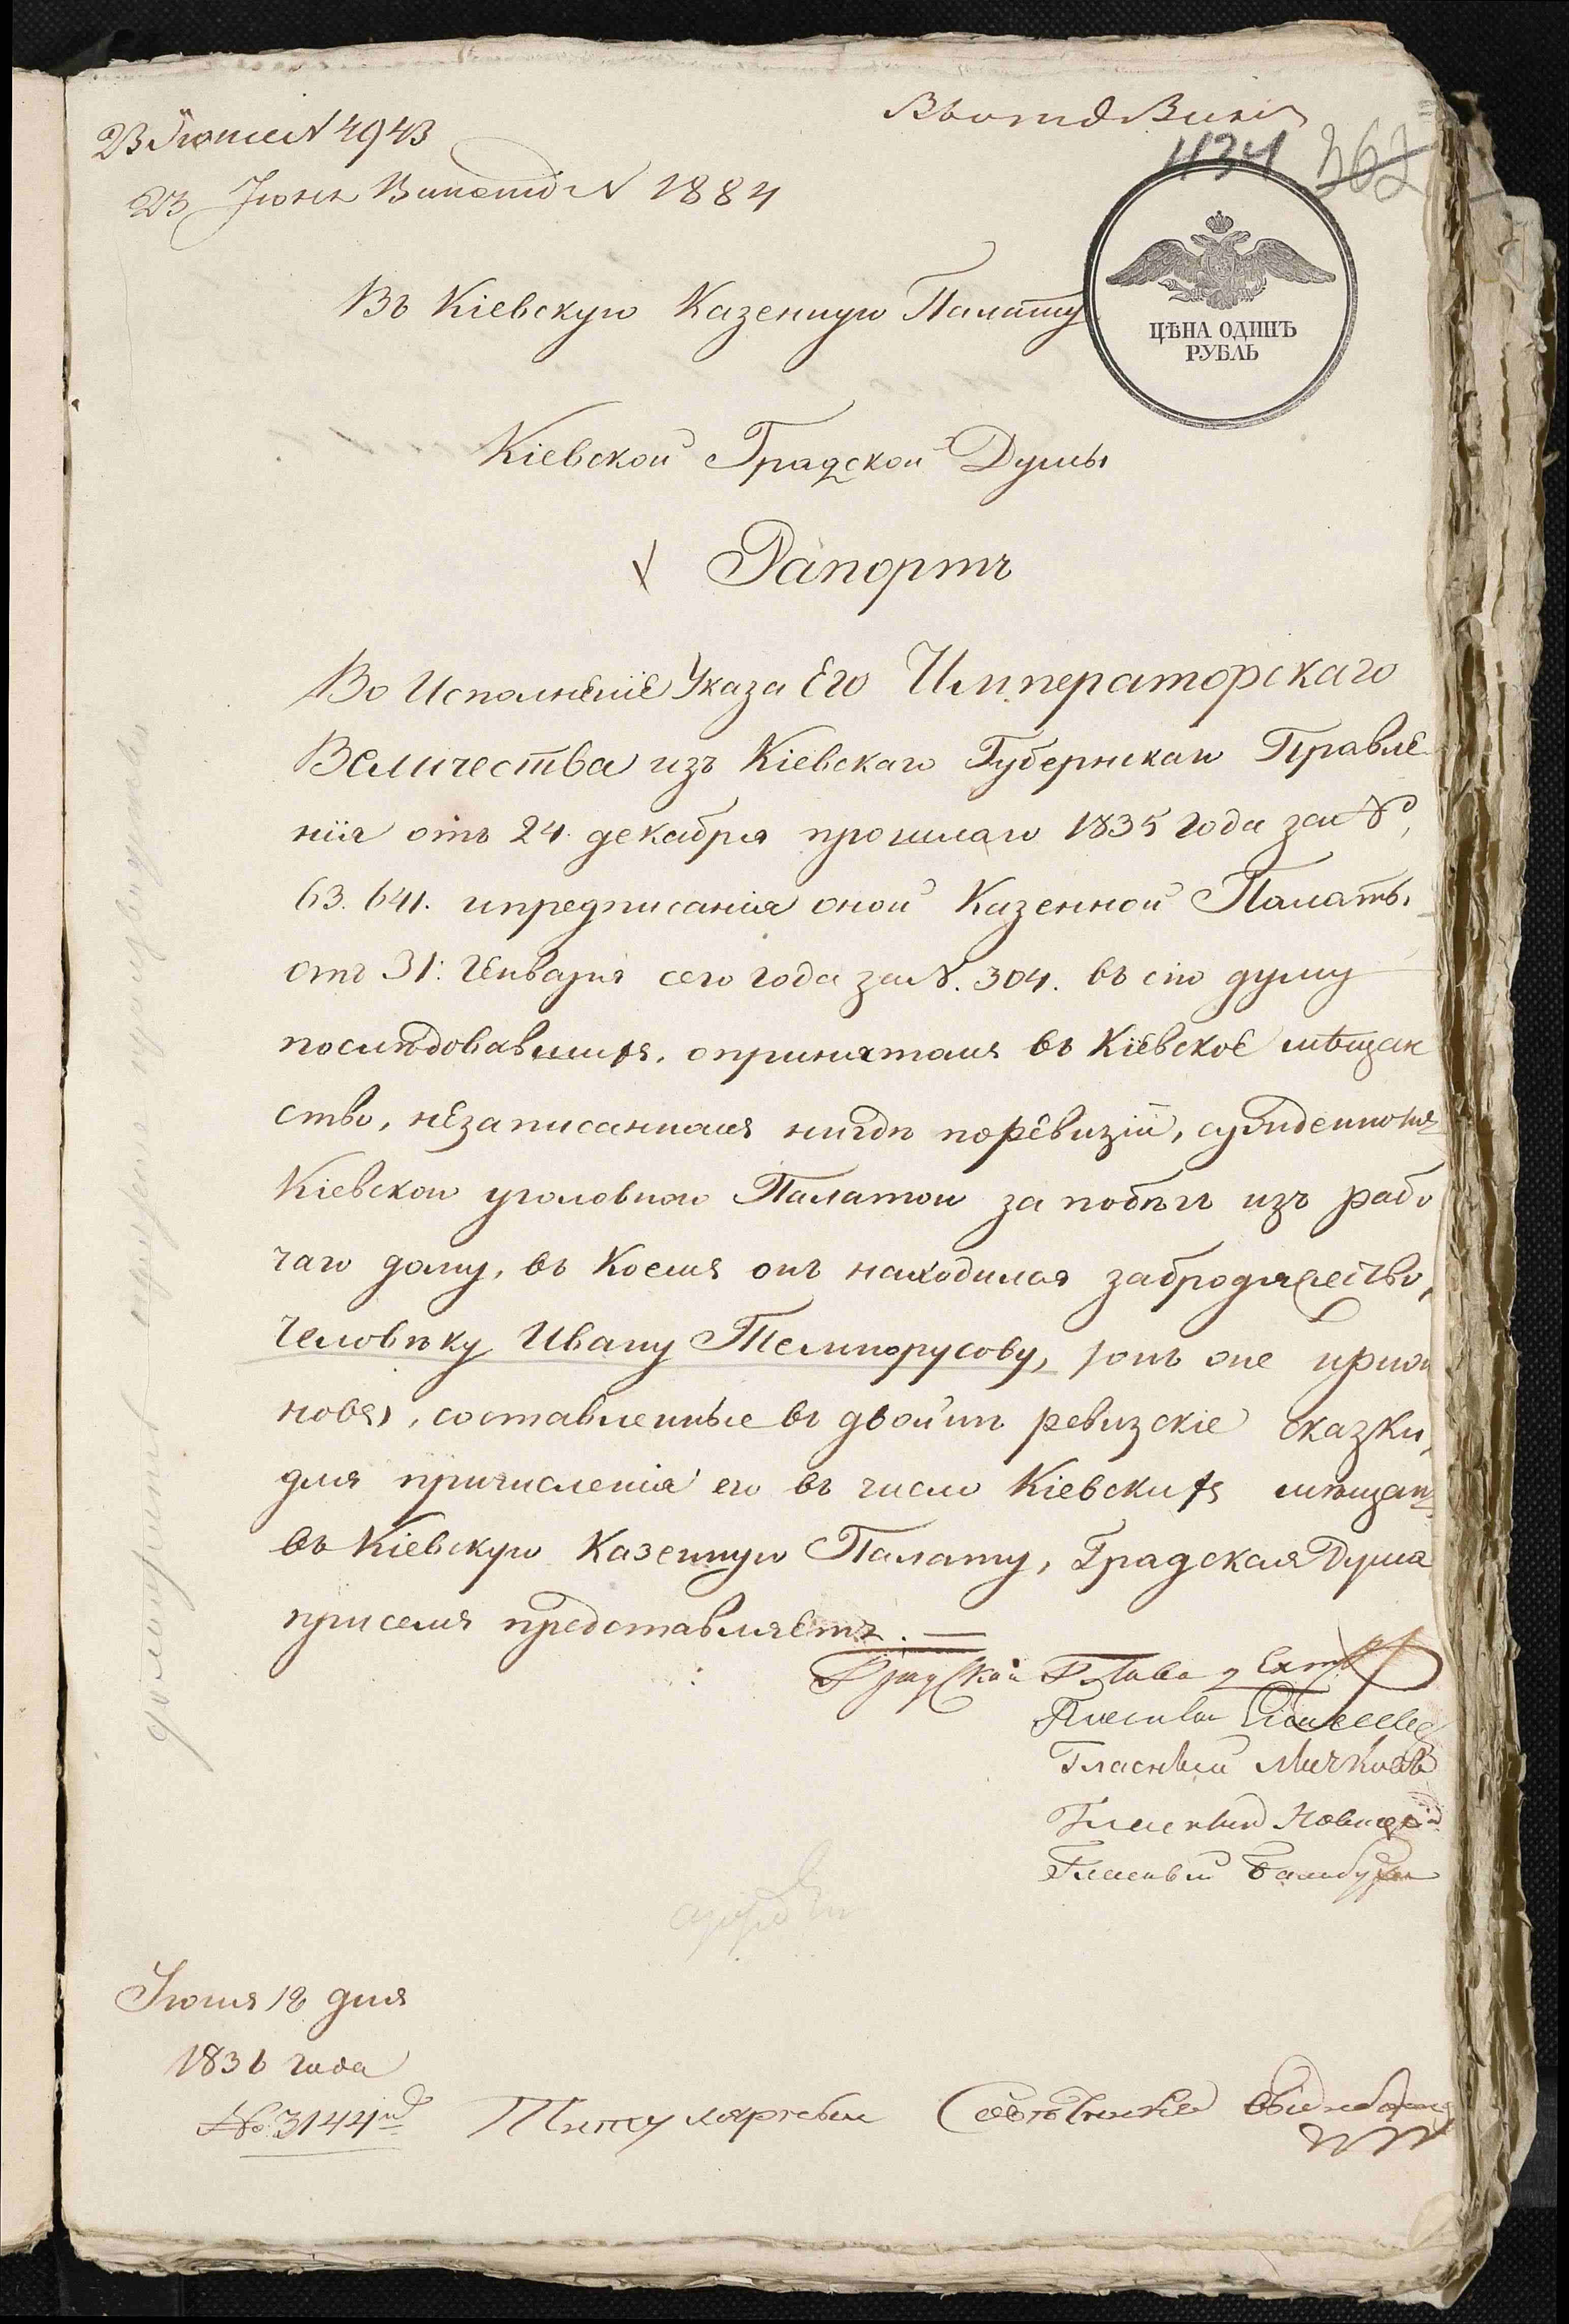 23 Іюня N 4943
23 Іюня N 1884
434 362
Въ Кіевскую Казенную Палату
ЦѢНА ОДИНЪ
РУБЛЬ
Кіевской Градской Думы
Рапортъ
Во Исполненіе Указа Его Императорскаго
Величества изъ Кіевскаго Губернскаго Правле
нія отъ 24. декабря прошлаго 1835 года за №
63.641. и предписанія оной Казенной Палаты
отъ 31. Генваря сего года за N. 304. въ сію думу
последовавшихъ, о принятомъ въ Кіевское мѣщан
ство, незаписанномъ нигдѣ по ревизіи, сужденномъ
Кіевскою уголовною Палатою за побѣгъ изъ рабо
чаго дому, въ коемъ онъ находился за бродяжество,
человѣку Ивану Темнорусову,
составленные въ двойнѣ ревизскіе сказки,
для причисленія его въ число Кіевскихъ мѣщанъ,
въ Кіевскую Казенную Палату, Градская Дума
при семъ представляетъ. —
Градской Глава
Гласный
Гласный
Гласный Новицкій
Гласный
Іюня 18 дня
1836 года
№ 3144
Титулярный Совѣтникъ